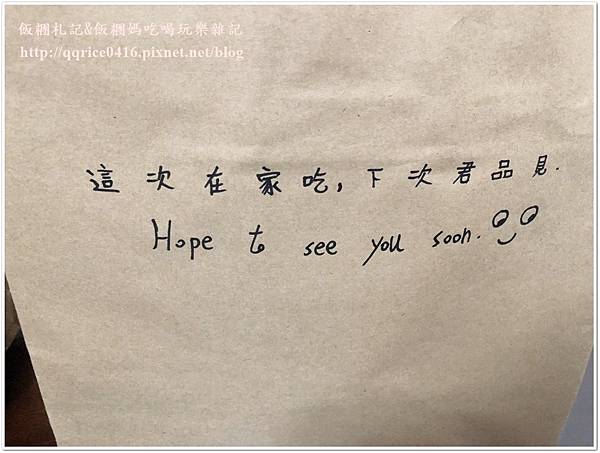 飯糰札記&飯糰媽吃喝玩樂雜記
http://qqrice0416.pixnet.net/blog
這次在家吃,下次君品見.
Hope to see you soon.